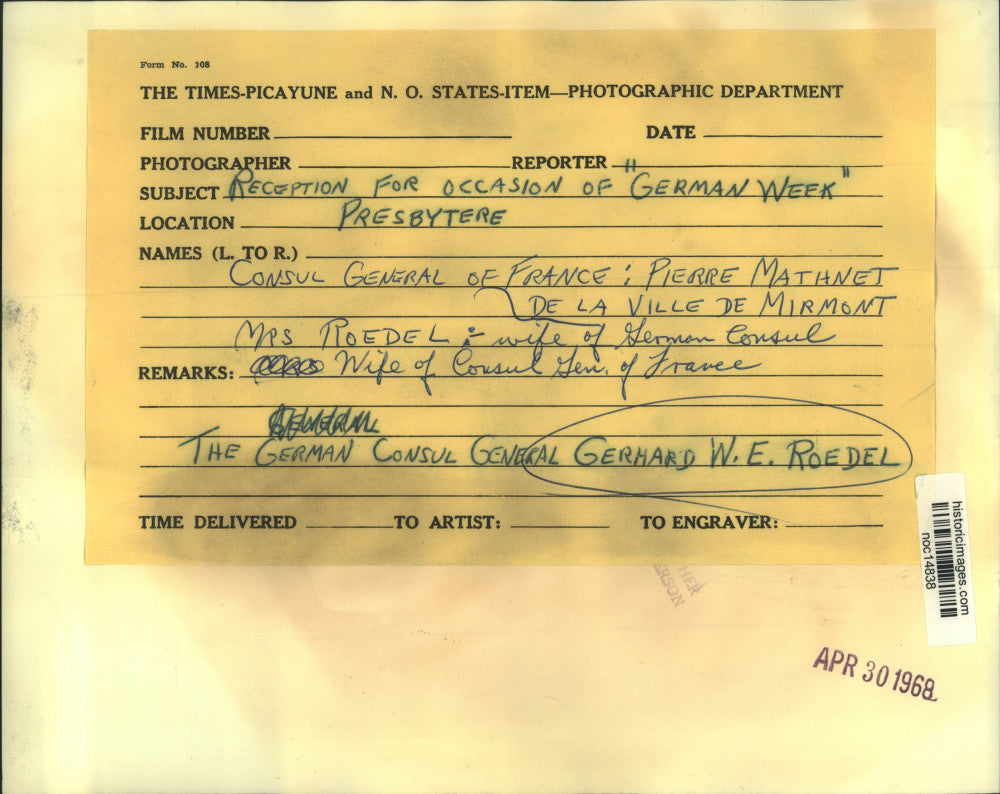 Form No. 108
THE TIMES-PICAYUNE and N. O. STATES-ITEM—PHOTOGRAPHIC DEPARTMENT
FILM NUMBER DATE
PHOTOGRAPHER REPORTER
SUBJECT RECEPTION FOR OCCASION OF "GERMAN WEEK"
LOCATION PRESBYTERE
NAMES (L. TO R.)
CONSUL GENERAL OF FRANCE : PIERRE MATHNET
DE LA VILLE DE MIRMONT
MRS ROEDEL :- wife of German Consul
REMARKS: Wife of Consul Gen. of France
THE GERMAN CONSUL GENERAL GERHARD W. E. ROEDEL
TIME DELIVERED TO ARTIST: TO ENGRAVER:
historicimages.com
noc14838
APR 30 1968